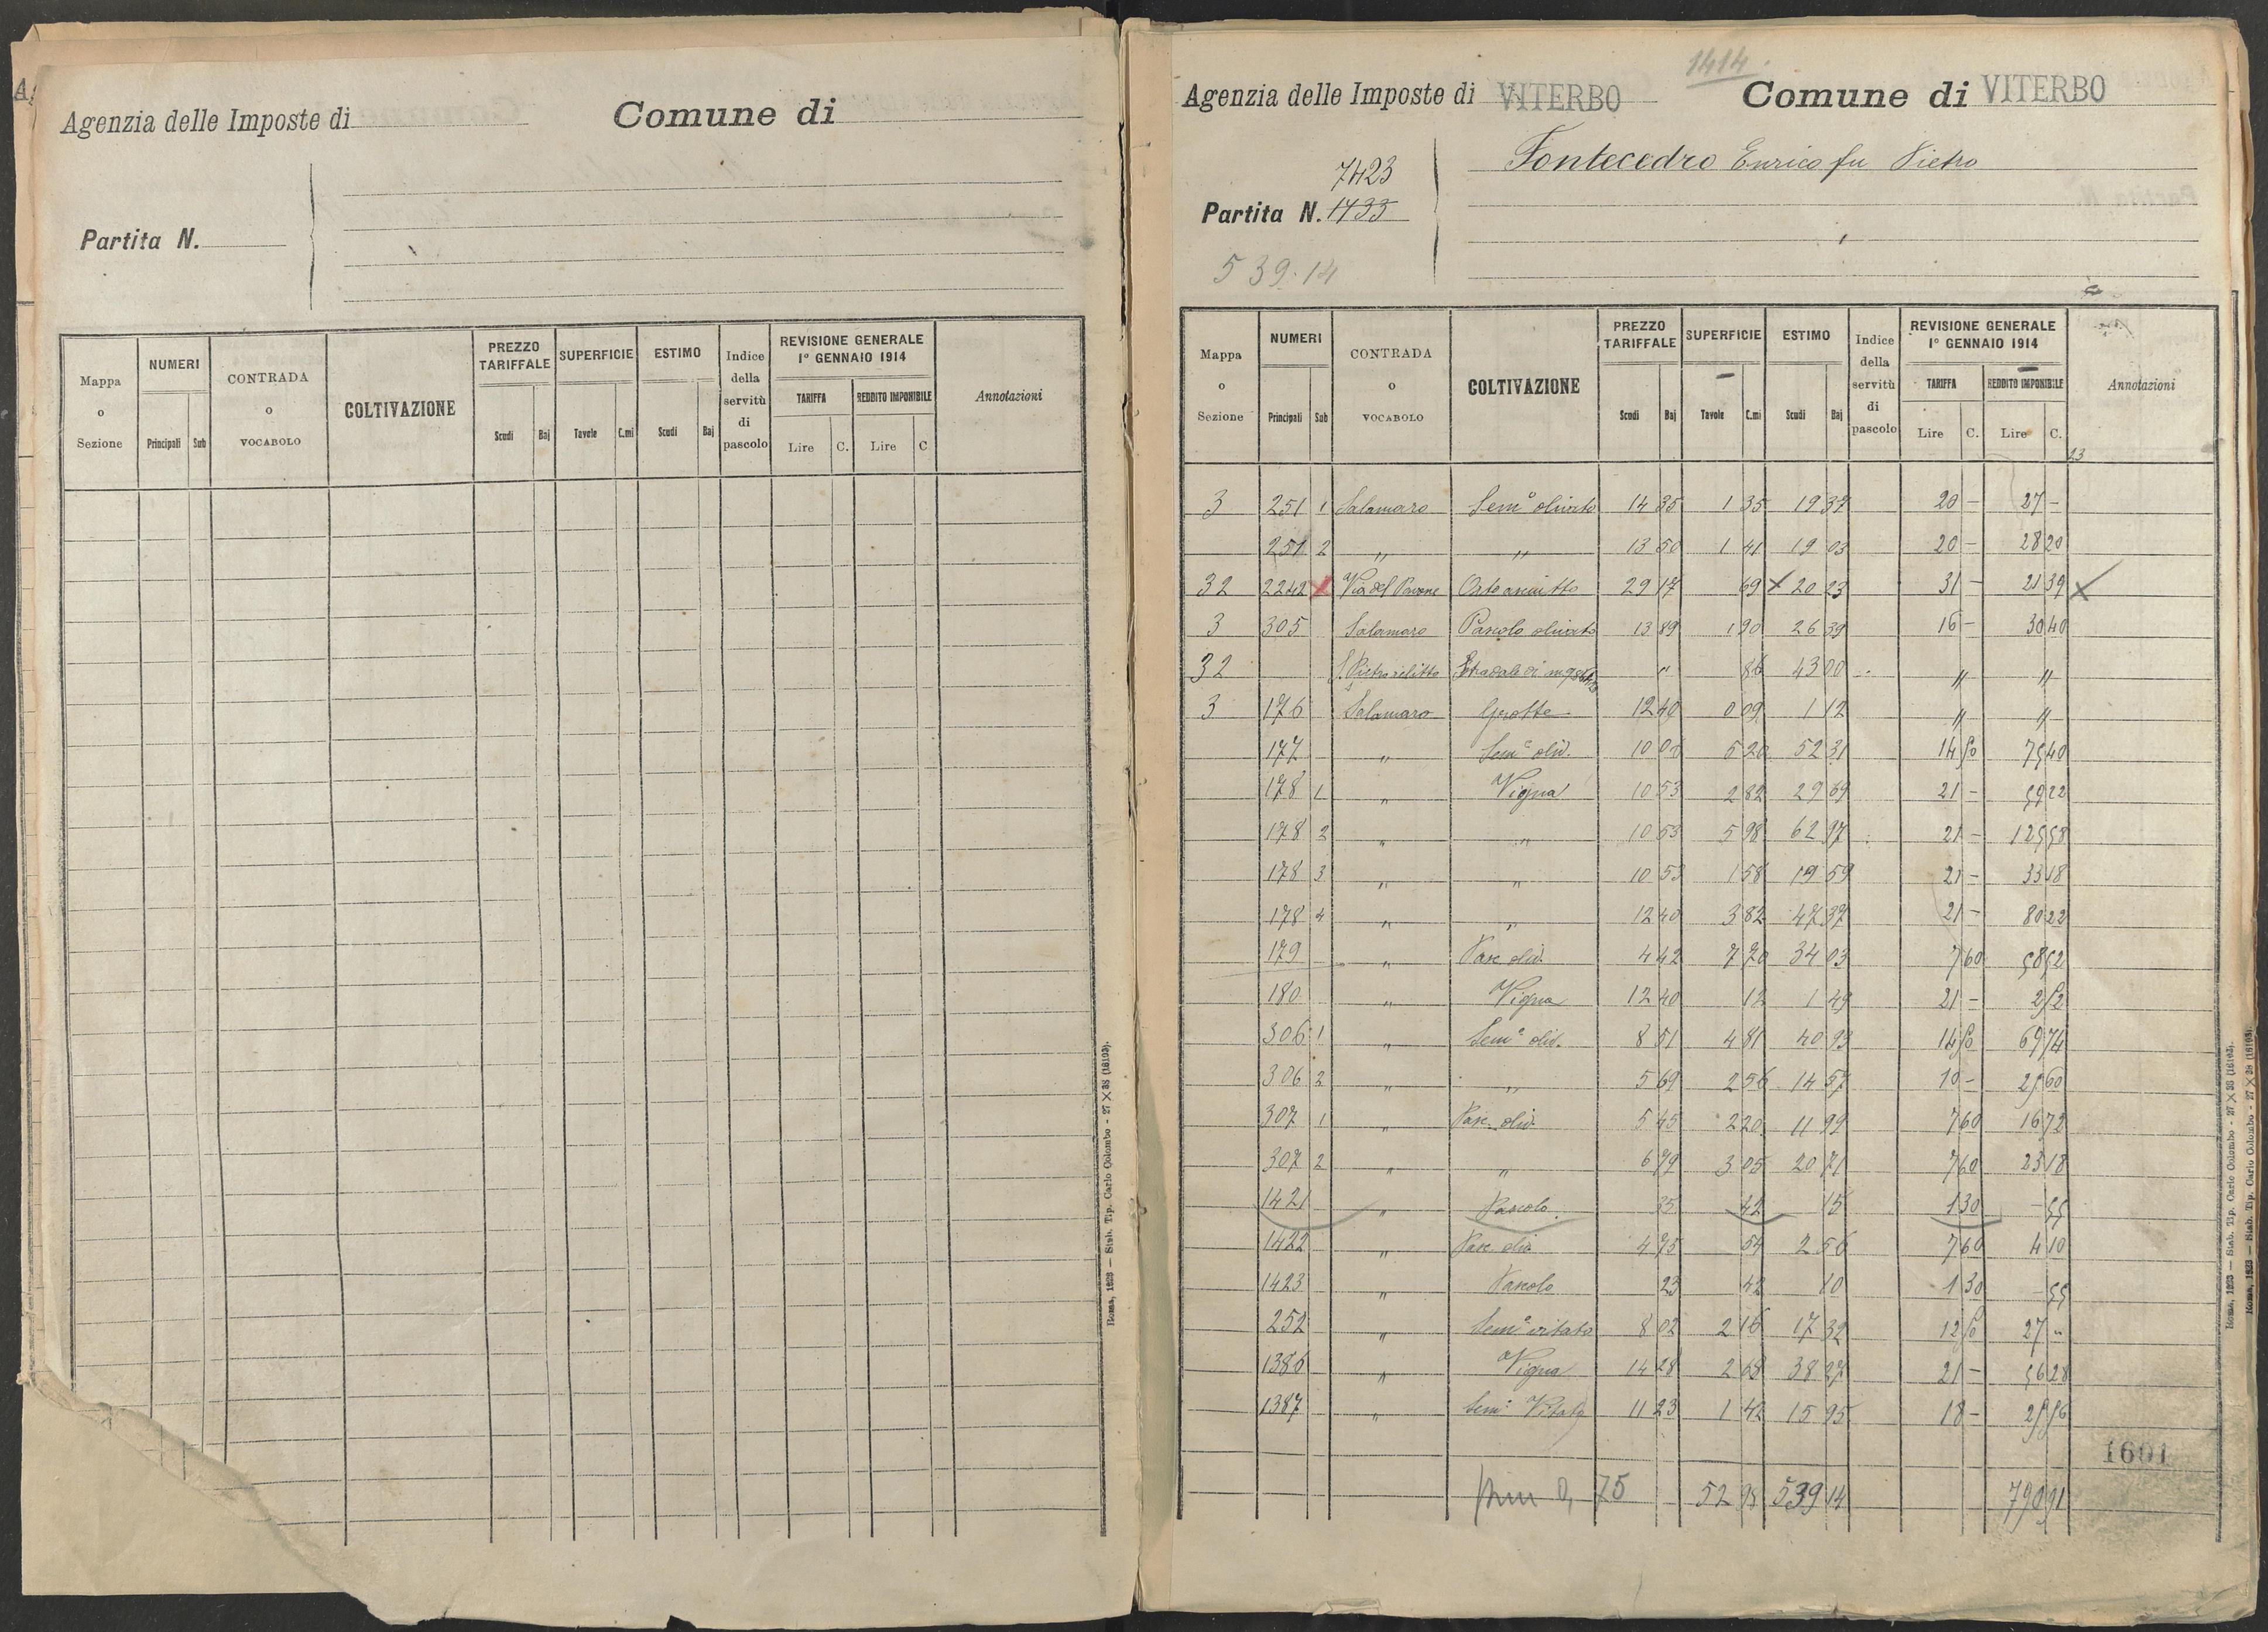 Agenzia delle Imposte di
Comune di
Partita N.
Mappa o Sezione | NUMERI Principali Sub | CONTRADA o VOCABOLO | COLTIVAZIONE | PREZZO TARIFFALE Scudi Baj | SUPERFICIE Tavole C.mi | ESTIMO Scudi Baj | Indice della servitù di pascolo | REVISIONE GENERALE 1º GENNAIO 1914 TARIFFA Lire C. REDDITO IMPONIBILE Lire C | Annotazioni
Roma, 1923 — Stab. Tip. Carlo Colombo - 27 × 38 (16193).
1414
Agenzia delle Imposte di VITERBO Comune di VITERBO
Fontecedro Enrico fu Pietro
7423
Partita N. 1733
539.14
Mappa o Sezione | NUMERI Principali Sub | CONTRADA o VOCABOLO | COLTIVAZIONE | PREZZO TARIFFALE Scudi Baj | SUPERFICIE Tavole C.mi | ESTIMO Scudi Baj | Indice della servitù di pascolo | REVISIONE GENERALE 1º GENNAIO 1914 TARIFFA Lire C. REDDITO IMPONIBILE Lire C. | Annotazioni
3 251 1 Salamaro Semº olivato 14 35 1 35 19 37 20 - 27 -
251 2 " " 13 50 1 41 19 03 20 - 28 20
32 2242 X Via del Pavone Orto asciutto 29 17 69 X 20 23 31 - 21 39 X
3 305 Salamaro Pascolo olivato 13 89 1 90 26 39 16 - 30 40
32 S. Pietro relitto Stradale di " 86 43 00 " "
3 176 Salamaro Grotte 12 40 0 09 1 12 " "
177 " Semº oliv. 10 06 5 20 52 31 14 50 75 40
178 1 " Vigna 10 53 2 82 29 69 21 - 59 22
178 2 " " 10 53 5 98 62 97 21 - 125 58
178 3 " " 10 53 1 58 19 59 21 - 33 18
178 4 " " 12 40 3 82 47 37 21 - 80 22
179 " Pasc. oliv. 4 42 7 70 34 03 7 60 58 52
180 " Vigna 12 40 12 1 49 21 - 2 52
306 1 " Semº oliv. 8 51 4 81 40 93 14 50 69 74
306 2 " " 5 69 2 56 14 57 10 - 25 60
307 1 " Pasc. oliv. 5 45 2 20 11 99 7 60 16 72
307 2 " " 6 79 3 05 20 71 7 60 23 18
1421 " Pascolo 35 42 15 1 30 - 55
1422 " Pasc. oliv. 4 75 54 2 56 7 60 4 10
1423 " Pascolo 23 42 10 1 30 - 55
252 " Semº vitato 8 02 2 16 17 32 12 50 27 "
1386 " Vigna 14 28 2 68 38 27 21 - 56 28
1387 " Semº Vitato 11 23 1 42 15 95 18 - 25 56
1601
0,75 52 98 539 14 790 91
Roma, 1923 — Stab. Tip. Carlo Colombo - 27 × 38 (16193).
Roma, 1923 — Stab. Tip. Carlo Colombo - 27 × 38 (16193).